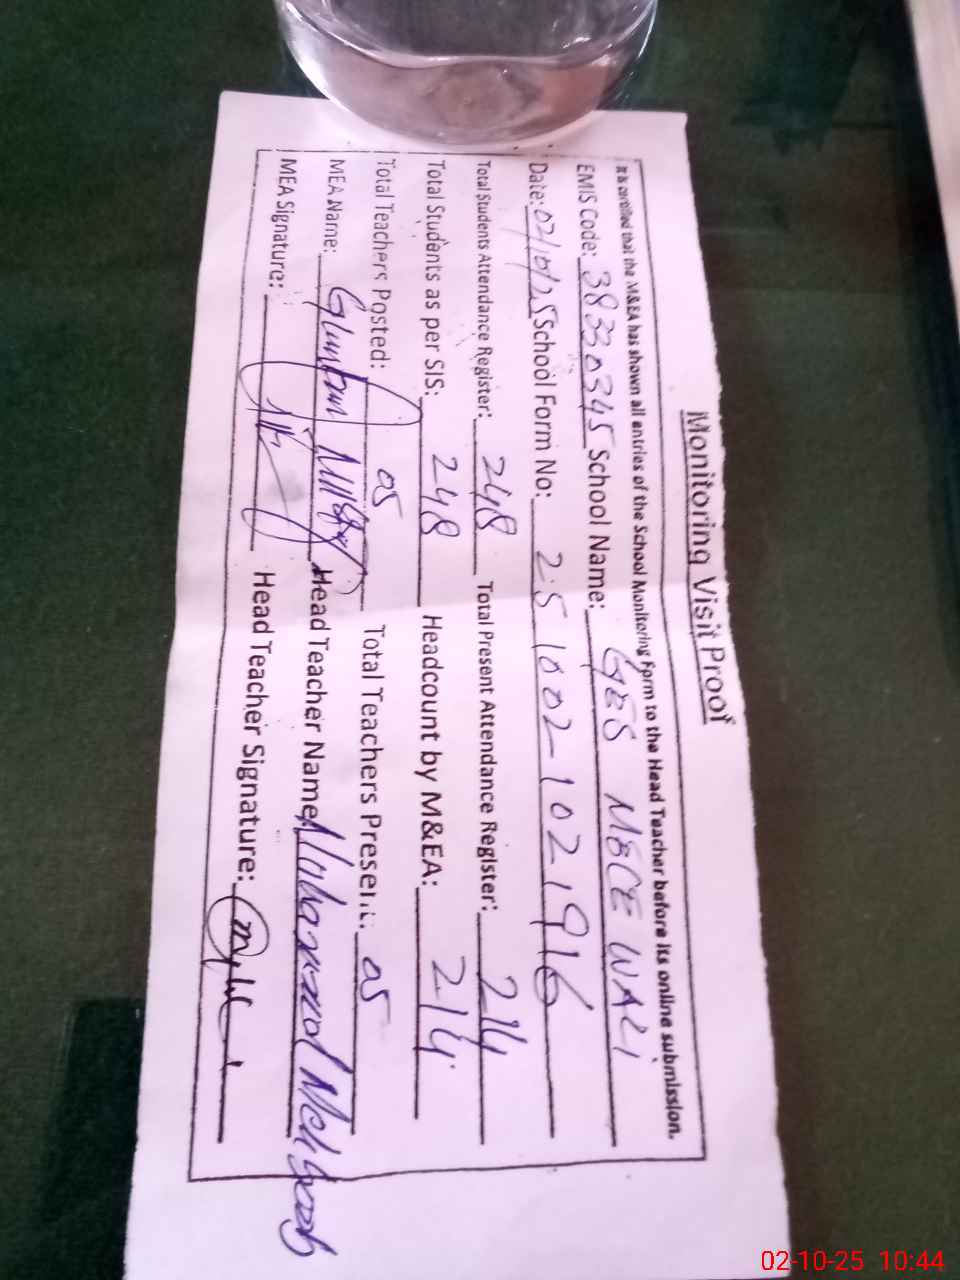 Monitoring Visit Proof
It is certified that the M&EA has shown all entries of the School Monitoring Form to the Head Teacher before its online submission.
EMIS Code: 38330345 School Name: GES MBCE WALI
Date: 02/10/25 School Form No: 251002-102196
Total Students Attendance Register: 248 Total Present Attendance Register: 214
Total Students as per SIS: 248 Headcount by M&EA: 214
Total Teachers Posted: 05 Total Teachers Present: 05
MEA Name: Head Teacher Name: Muhammad Mehboob
MEA Signature: Head Teacher Signature:
02-10-25 10:44